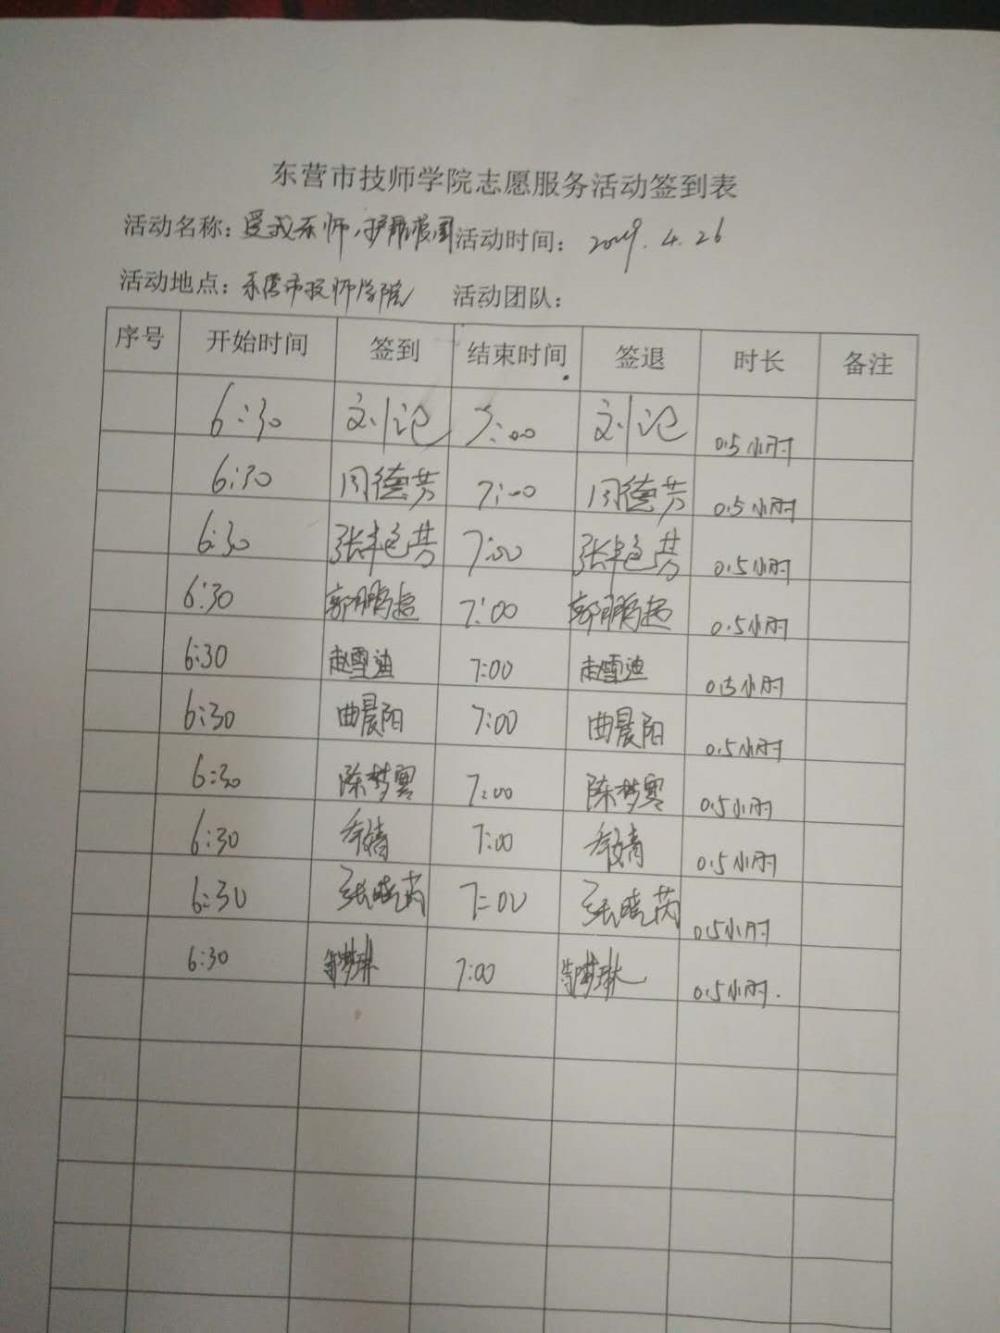 东营市技师学院志愿服务活动签到表
活动名称：爱我东师，护我校园 活动时间：2019.4.26
活动地点：东营市技师学院 活动团队：
序号 开始时间 签到 结束时间 签退 时长 备注
6:30 刘论 7:00 刘论 0.5小时
6:30 闫德芳 7:00 闫德芳 0.5小时
6:30 张艳芳 7:00 张艳芳 0.5小时
6:30 郭鹏超 7:00 郭鹏超 0.5小时
6:30 赵雪迪 7:00 赵雪迪 0.5小时
6:30 曲晨阳 7:00 曲晨阳 0.5小时
6:30 陈梦 7:00 陈梦 0.5小时
6:30 7:00 0.5小时
6:30 张晓芮 7:00 张晓芮 0.5小时
6:30 梦琳 7:00 梦琳 0.5小时.